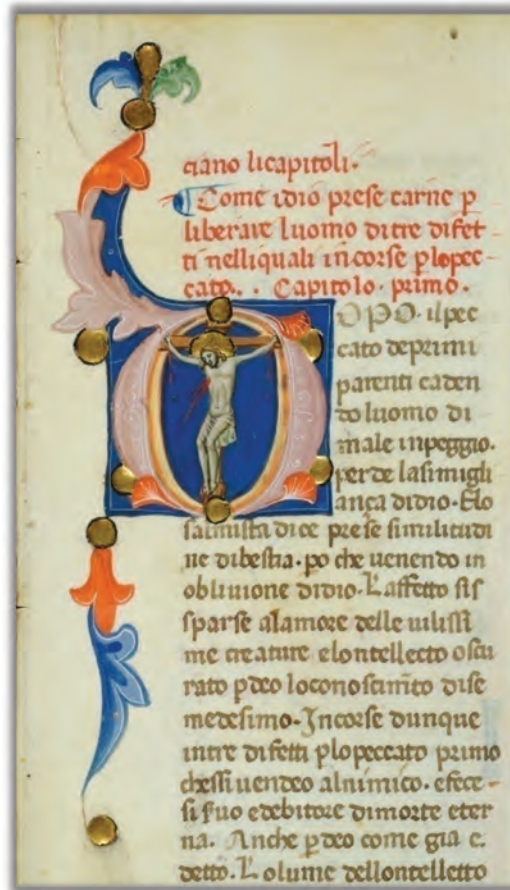 ciano licapitoli.
Come idio prese carne p
liberare luomo di tre difet-
ti nelliquali incorse plopec-
cato. . Capitolo. primo.
DOPO. ilpec
cato deprimi
parenti caden
do luomo di
male inpeggio.
perde lasimigli
ança didio. Elo
salmista dice prese similitudi
ne dibestia. po che uenendo in
obliuione didio. Laffetto sis
sparse alamore delle uilissi
me creature elontellecto oscu
rato pdeo loconoscimẽto dise
medesimo. Incorse dunque
intre difetti plopeccato primo
chessi uendeo alnimico. efece
si suo edebitore dimorte eter
na. Anche pdeo come gia e.
detto. Lolume dellontelletto